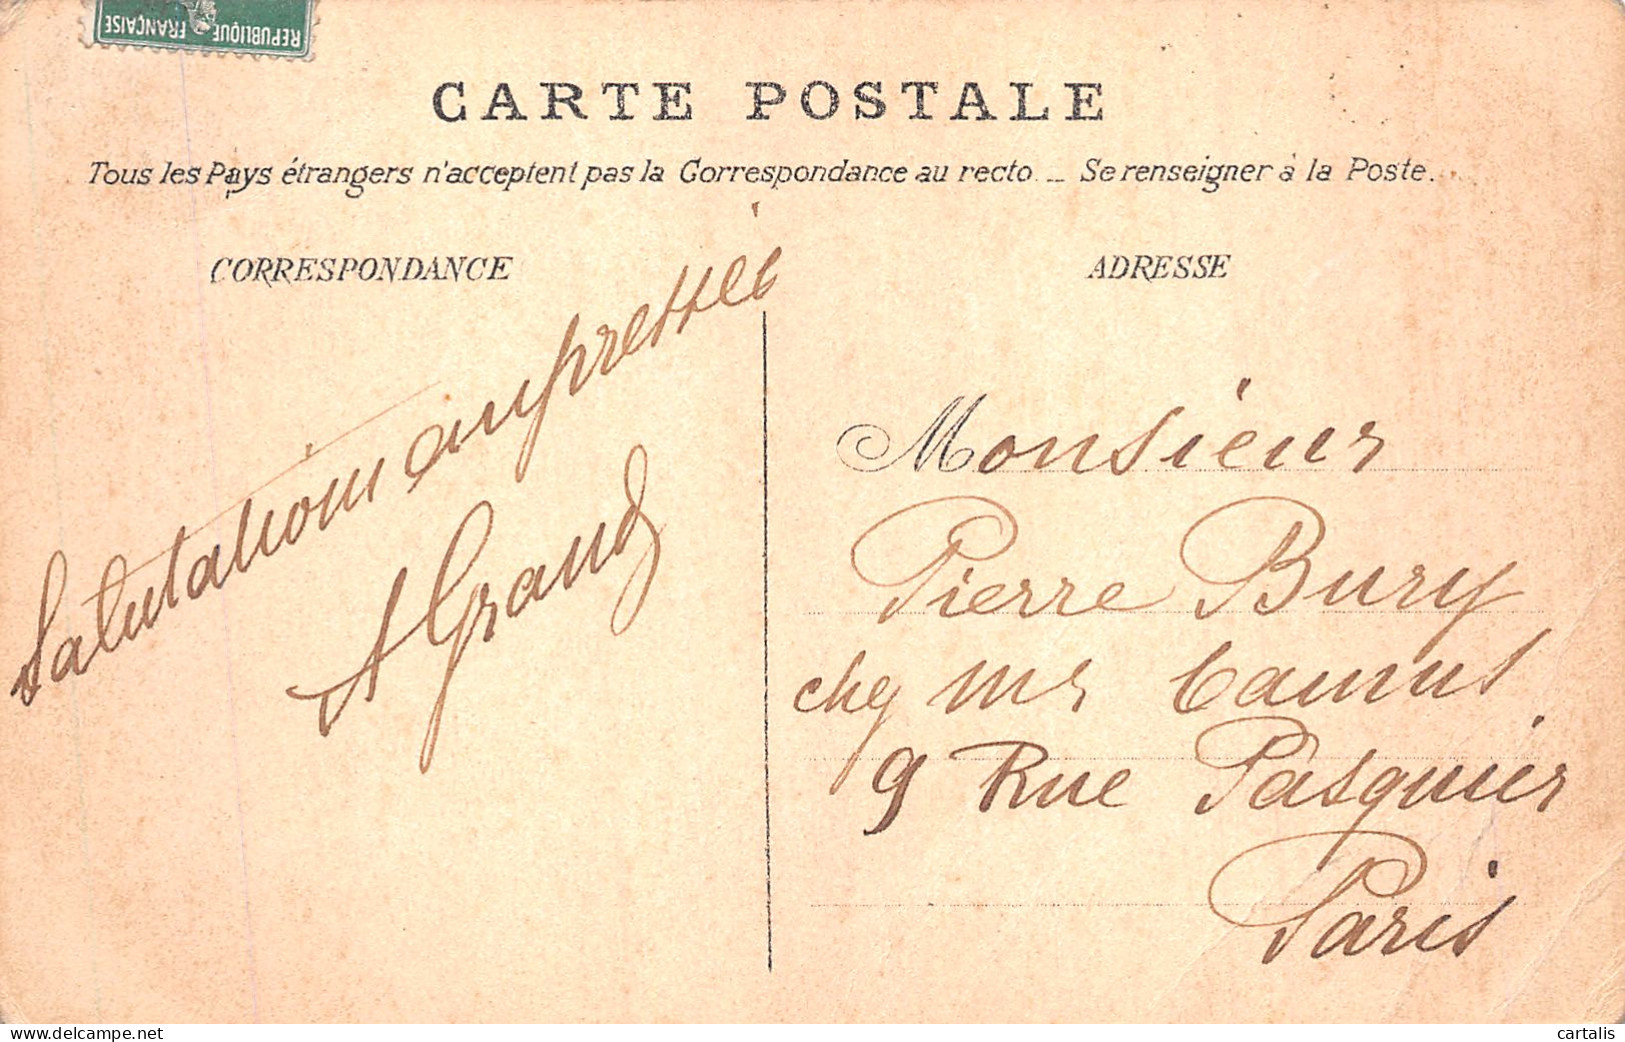 REPUBLIQUE FRANÇAISE
CARTE POSTALE
Tous les Pays étrangers n'acceptent pas la Correspondance au recto. _ Se renseigner à la Poste.
CORRESPONDANCE
Salutations empressées
A Grand
ADRESSE
Monsieur
Pierre Bury
chez Mr Camus
9 Rue Pasquier
Paris
cartalis